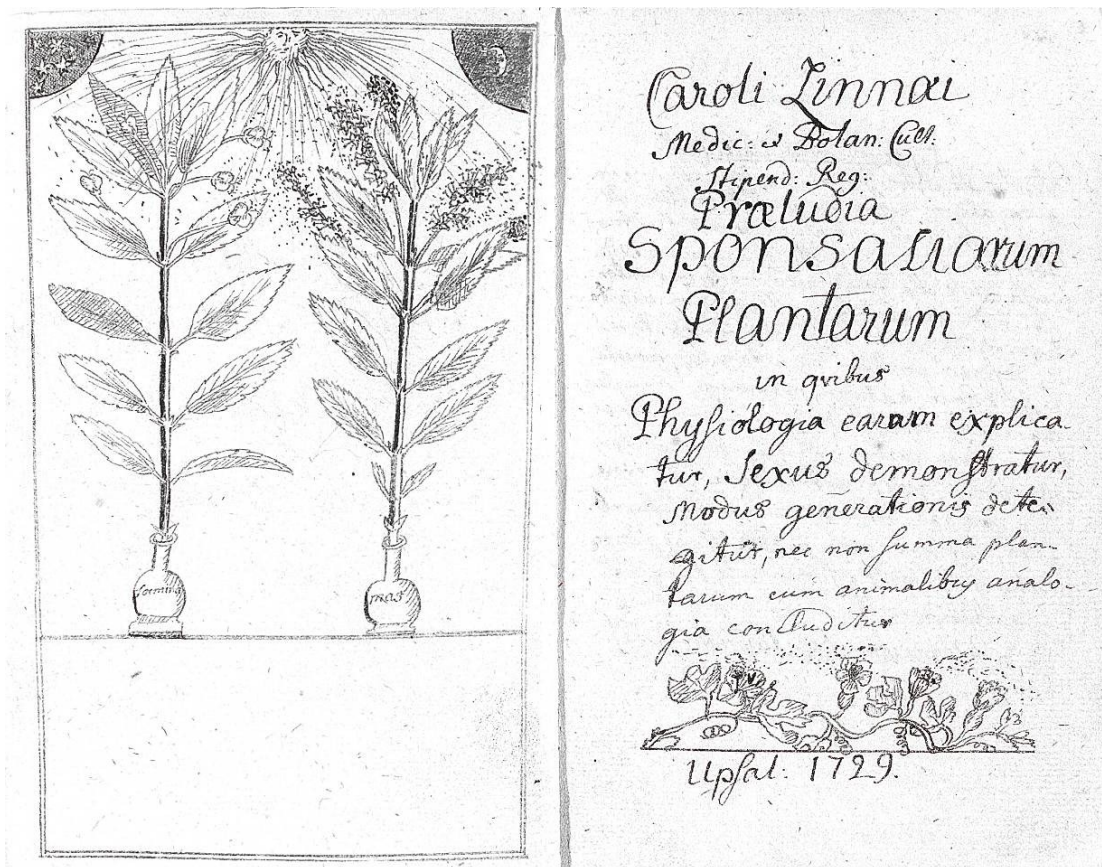 foemina
mas
Caroli Linnæi
Medic: et Botan: Cult.
Stipend: Reg:
Præludia
Sponsaliarum
Plantarum
in qvibus
Physiologia earum explica-
tur, Sexus demonstratur,
Modus generationis dete-
gitur, nec non summa plan-
tarum cum animalibus analo-
gia concluditur
Upsal: 1729.